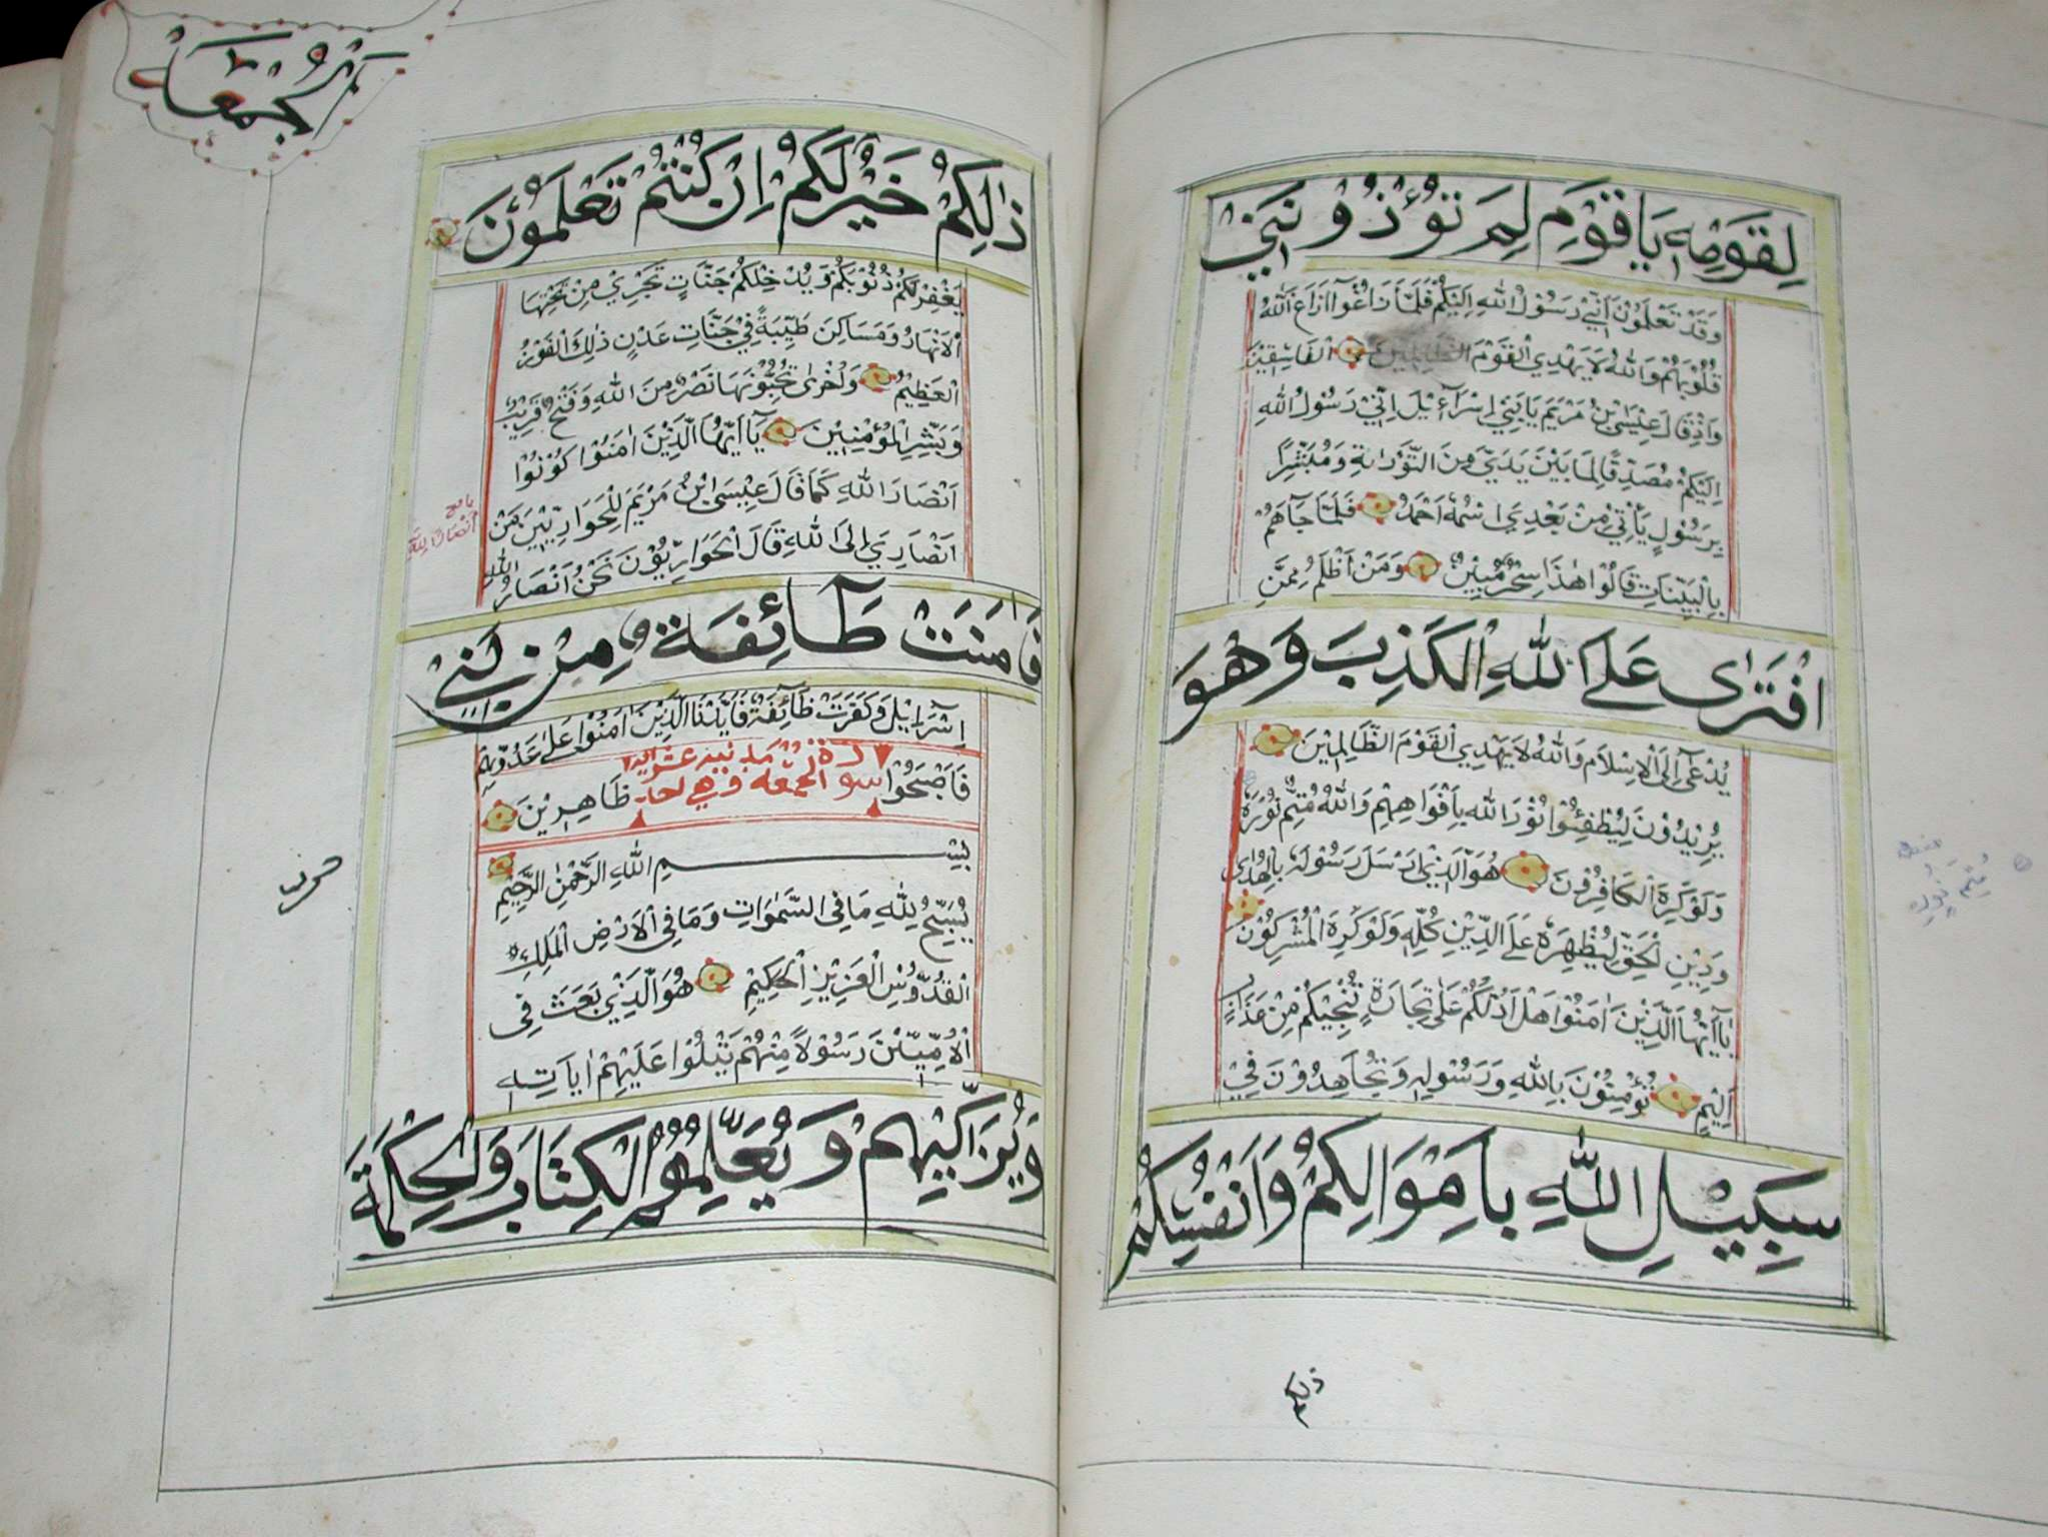 لِقَوْمِهِ يَا قَوْمِ لِمَ تُوْذُوْنَنِيْ
وَقَدْ تَعْلَمُوْنَ اَنِّيْ رَسُوْلُ اللهِ اِلَيْكُمْ فَلَمَّا زَاغُوْا اَزَاغَ اللهُ
قُلُوْبَهُمْ وَاللهُ لَا يَهْدِي الْقَوْمَ الظَّالِمِيْنَ الْفَاسِقِيْنَ
وَاِذْ قَالَ عِيْسَى ابْنُ مَرْيَمَ يَا بَنِيْ اِسْرَآءِيْلَ اِنِّيْ رَسُوْلُ اللهِ
اِلَيْكُمْ مُصَدِّقًا لِمَا بَيْنَ يَدَيَّ مِنَ التَّوْرَاىةِ وَمُبَشِّرًا
بِرَسُوْلٍ يَأْتِيْ مِنْ بَعْدِي اسْمُهٗ اَحْمَدُ فَلَمَّا جَآهُمْ
بِالْبَيِّنَاتِ قَالُوْا هٰذَا سِحْرٌ مُبِيْنٌ وَمَنْ اَظْلَمُ مِمَّنِ
افْتَرٰى عَلَى اللهِ الْكَذِبَ وَهُوَ
يُدْعٰٓى اِلَى الْاِسْلَامِ وَاللهُ لَا يَهْدِي الْقَوْمَ الظَّالِمِيْنَ
يُرِيْدُوْنَ لِيُطْفِئُوْا نُوْرَ اللهِ بِاَفْوَاهِهِمْ وَاللهُ مُتِمُّ نُوْرَهٗ
وَلَوْ كَرِهَ الْكَافِرُوْنَ هُوَ الَّذِيْ اَرْسَلَ رَسُوْلَهٗ بِالْهُدٰى
وَدِيْنِ الْحَقِّ لِيُظْهِرَهٗ عَلَى الدِّيْنِ كُلِّهٖ وَلَوْ كَرِهَ الْمُشْرِكُوْنَ
يَآ اَيُّهَا الَّذِيْنَ اٰمَنُوْا هَلْ اَدُلُّكُمْ عَلٰى تِجَارَةٍ تُنْجِيْكُمْ مِنْ عَذَابٍ
اَلِيْمٍ تُؤْمِنُوْنَ بِاللهِ وَرَسُوْلِهٖ وَتُجَاهِدُوْنَ فِيْ
سَبِيْلِ اللهِ بِاَمْوَالِكُمْ وَاَنْفُسِكُمْ
ذلكم
مُتِمُّ نُوْرِهٖ
الْجُمُعَة
ذٰلِكُمْ خَيْرٌ لَكُمْ اِنْ كُنْتُمْ تَعْلَمُوْنَ
يَغْفِرْ لَكُمْ ذُنُوْبَكُمْ وَيُدْخِلْكُمْ جَنَّاتٍ تَجْرِيْ مِنْ تَحْتِهَا
الْاَنْهَارُ وَمَسَاكِنَ طَيِّبَةً فِيْ جَنَّاتِ عَدْنٍ ذٰلِكَ الْفَوْزُ
الْعَظِيْمُ وَاُخْرٰى تُحِبُّوْنَهَا نَصْرٌ مِنَ اللهِ وَفَتْحٌ قَرِيْبٌ
وَبَشِّرِ الْمُؤْمِنِيْنَ يَآ اَيُّهَا الَّذِيْنَ اٰمَنُوْا كُوْنُوْا
اَنْصَارَ اللهِ كَمَا قَالَ عِيْسَى ابْنُ مَرْيَمَ لِلْحَوَارِيِّيْنَ مَنْ
اَنْصَارِيْ اِلَى اللهِ قَالَ الْحَوَارِيُّوْنَ نَحْنُ اَنْصَارُ اللهِ
اَنْصَارًا لِلهِ
فَاٰمَنَتْ طَآئِفَةٌ مِنْ بَنِيْ
اِسْرَآءِيْلَ وَكَفَرَتْ طَآئِفَةٌ فَاَيَّدْنَا الَّذِيْنَ اٰمَنُوْا عَلٰى عَدُوِّهِمْ
فَاَصْبَحُوْا ظَاهِرِيْنَ
سورة الجمعة مدنية وهي احد عشر اية
بِسْمِ اللهِ الرَّحْمٰنِ الرَّحِيْمِ
يُسَبِّحُ لِلّٰهِ مَا فِي السَّمٰوَاتِ وَمَا فِي الْاَرْضِ الْمَلِكِ
الْقُدُّوْسِ الْعَزِيْزِ الْحَكِيْمِ هُوَ الَّذِيْ بَعَثَ فِى
الْاُمِّيّٖنَ رَسُوْلًا مِنْهُمْ يَتْلُوْا عَلَيْهِمْ اٰيَاتِهٖ
وَيُزَكِّيْهِمْ وَيُعَلِّمُهُمُ الْكِتَابَ وَالْحِكْمَةَ